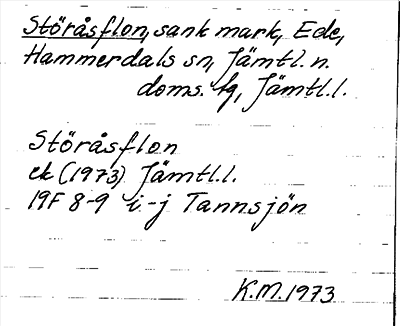 Störåsflon, sank mark, Ede,
Hammerdals sn, Jämtl. n.
doms. fg, Jämtl.l.
Störåsflon
ek (1973) Jämtl.l.
19F 8-9 i-j Tannsjön
K.M. 1973